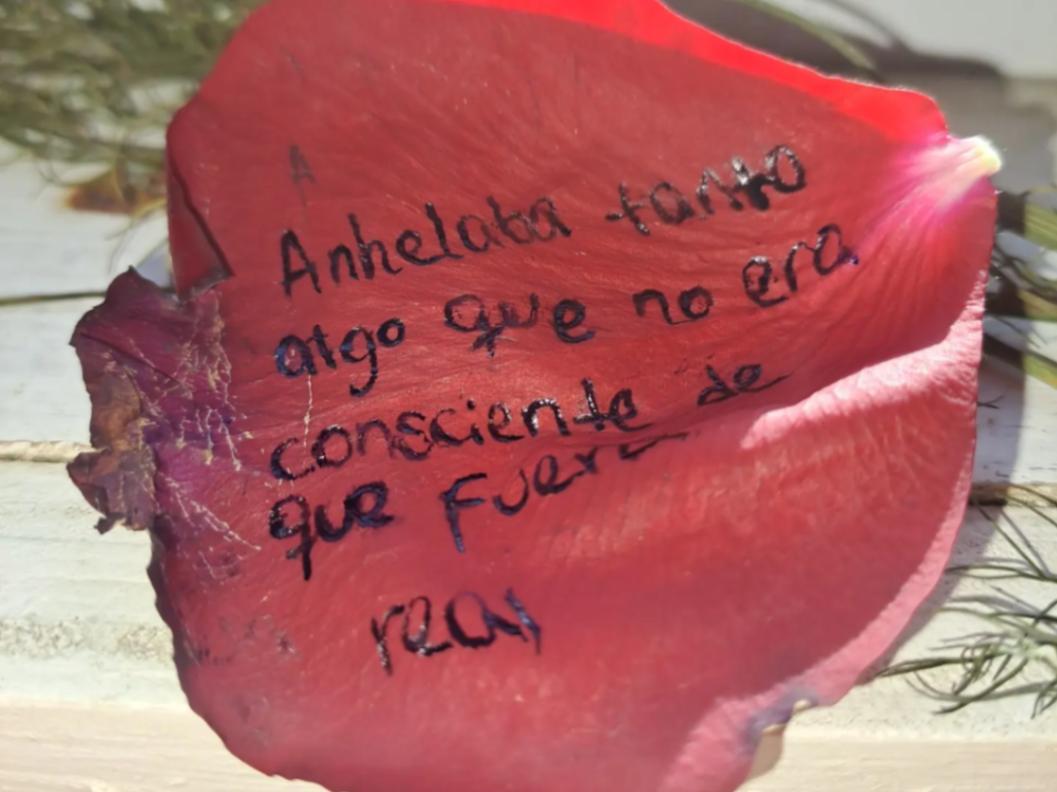 A
Anhelaba tanto
algo que no era
consciente de
que Fuera
real